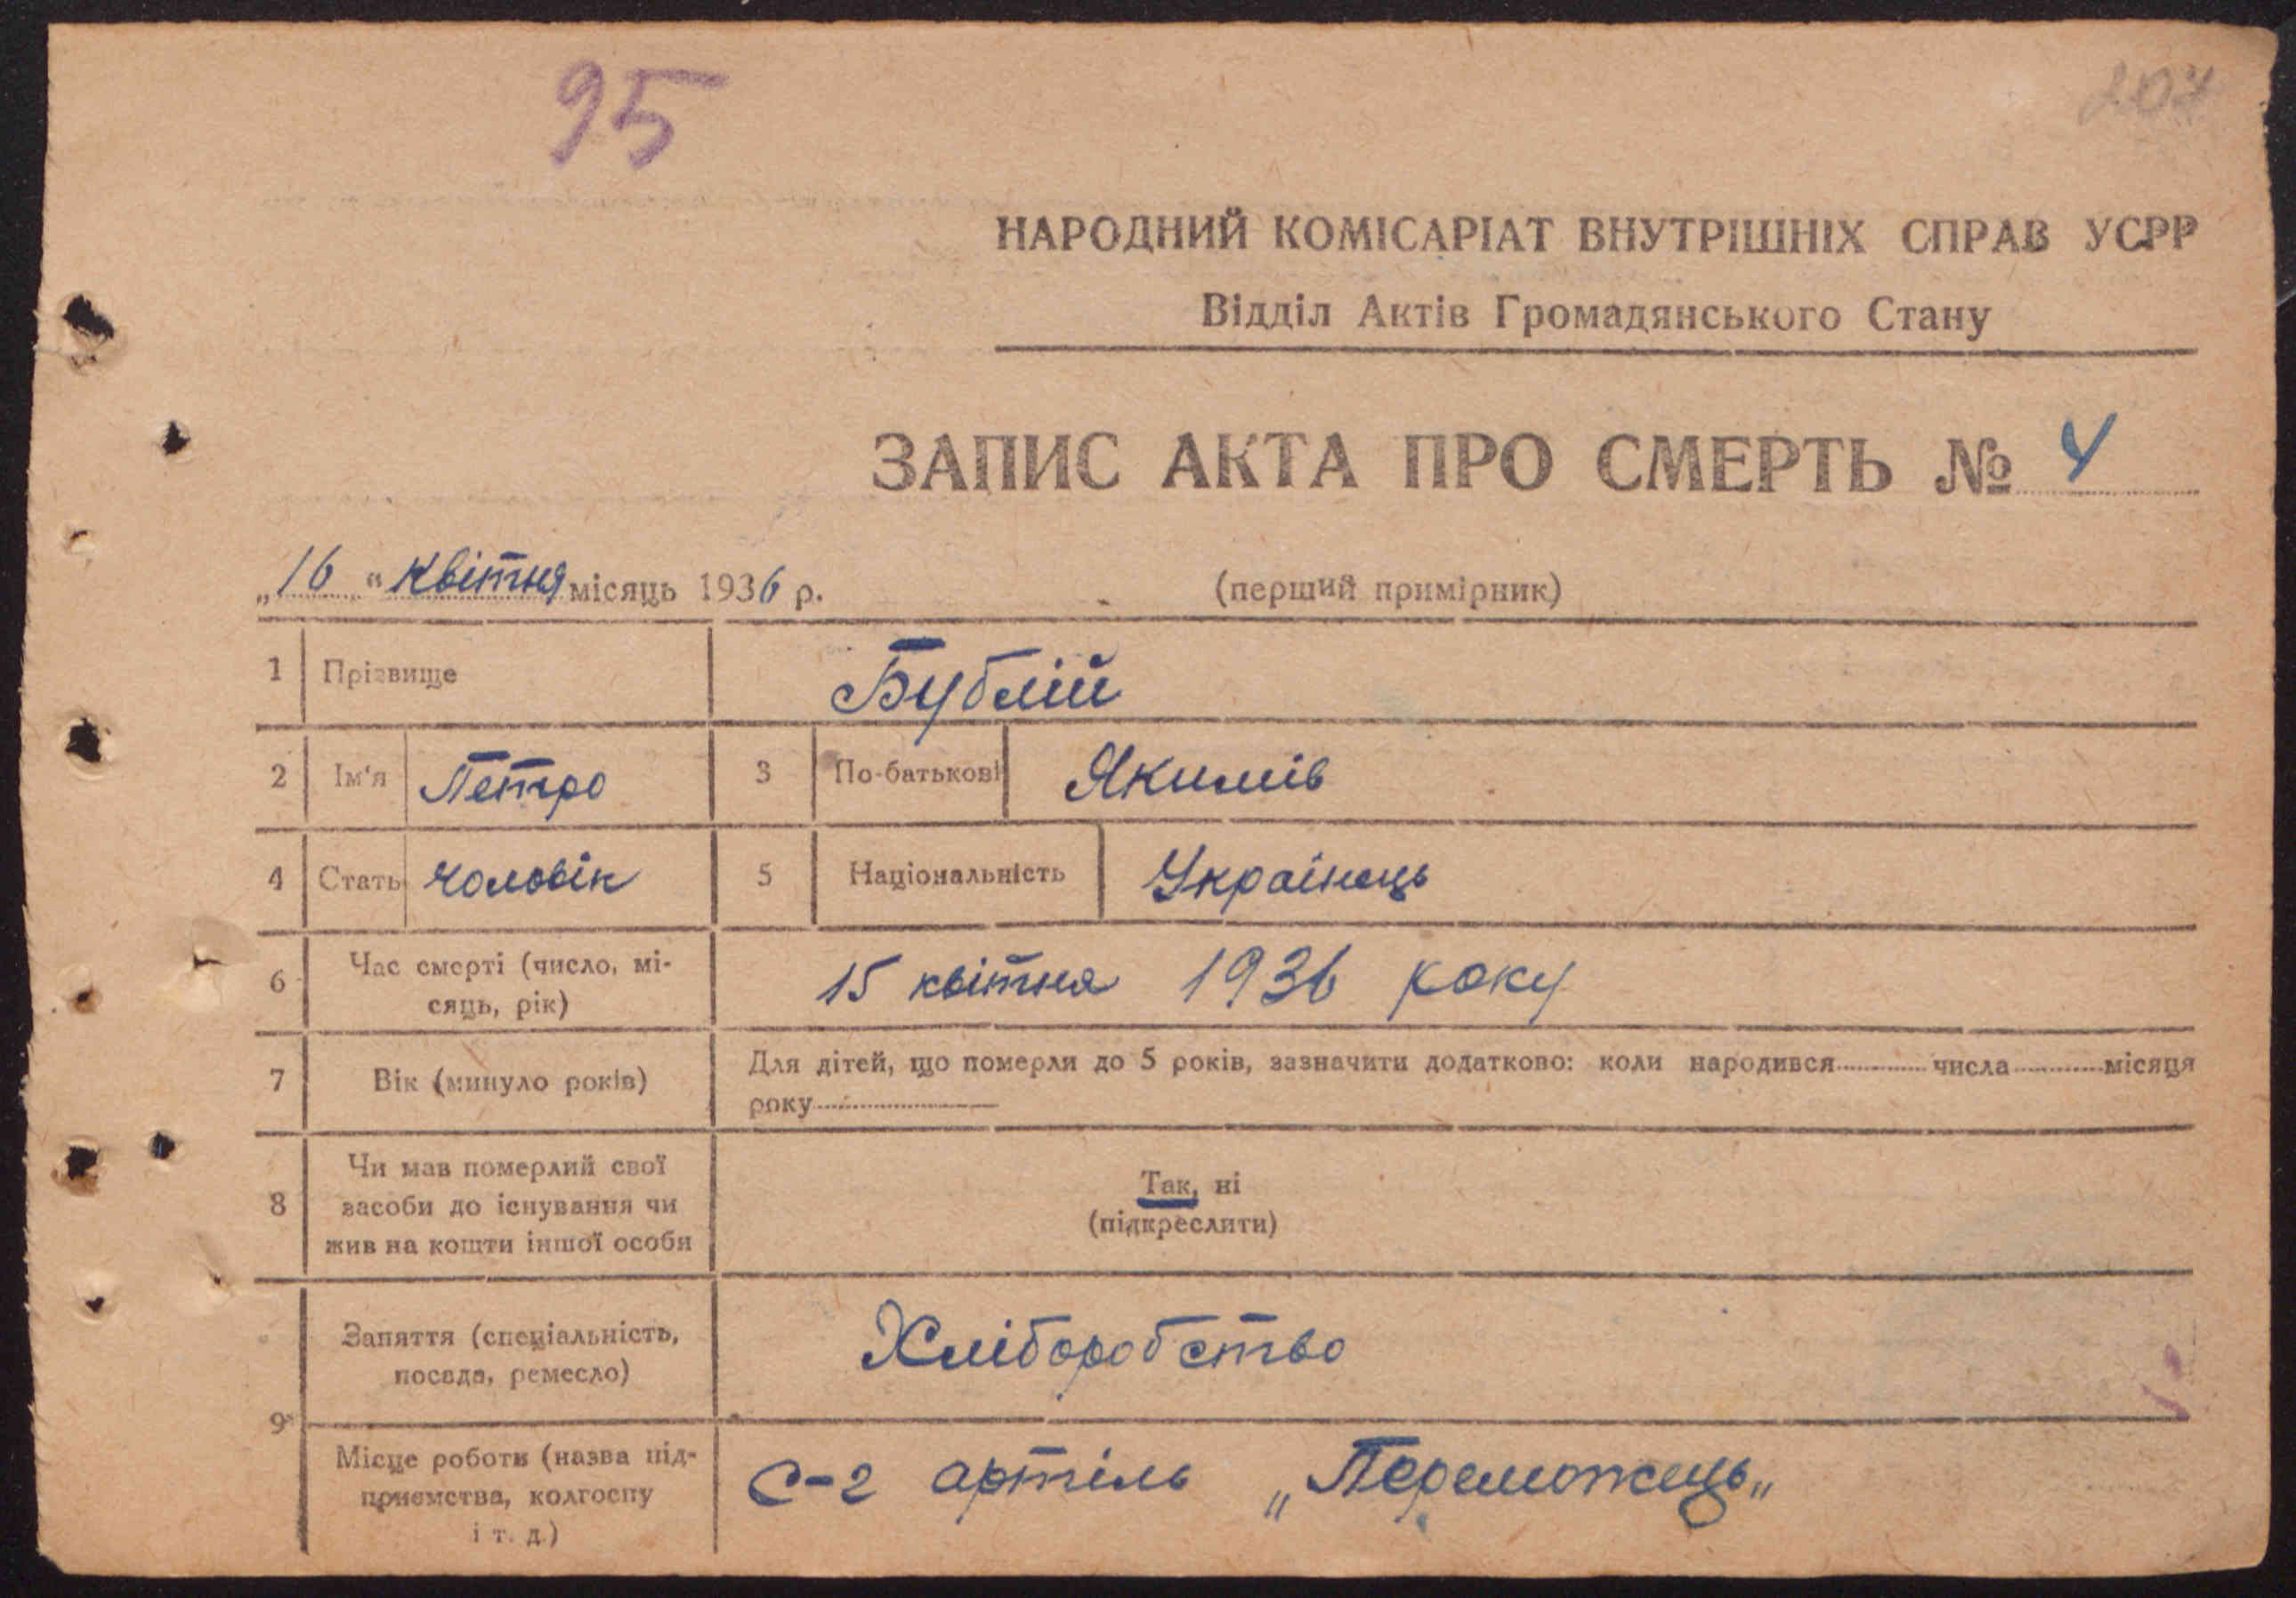 95
207
НАРОДНИЙ КОМІСАРІАТ ВНУТРІШНІХ СПРАВ УСРР
Відділ Актів Громадянського Стану
ЗАПИС АКТА ПРО СМЕРТЬ № 4
„16“ квітня місяць 1936 р.
(перший примірник)
1 Прізвище Бублій
2 Ім'я Петро 3 По-батькові Якимів
4 Стать чоловік 5 Національність Українець
6 Час смерті (число, мі-
сяць, рік) 15 квітня 1936 року
7 Вік (минуло років) Для дітей, що померли до 5 років, зазначити додатково: коли народився числа місяця
року
8 Чи мав померлий свої
засоби до існування чи
жив на кошти іншої особи
Так, ні
(підкреслити)
9 Заняття (спеціальність,
посада, ремесло) Хліборобство
Місце роботи (назва під-
приємства, колгоспу
і т. д.) С-г артіль „Переможець„